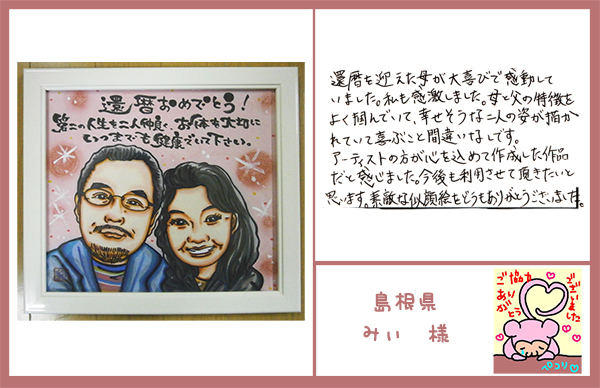 還暦おめでとう!
第二の人生も二人仲良く、お体を大切に
いつまでも健康でいて下さい。
還暦を迎えた母が大喜びで感動して
いました。私も感激しました。母と父の特徴を
よく掴んでいて、幸せそうな二人の姿が描か
れていて喜ぶこと間違いなしです。
アーティストの方が心を込めて作成した作品
だと感じました。今後も利用させて頂きたいと
思います。素敵な似顔絵をどうもありがとうございました。
島根県
みぃ 様
ご協力
ありがとう
ございました
ペコリ